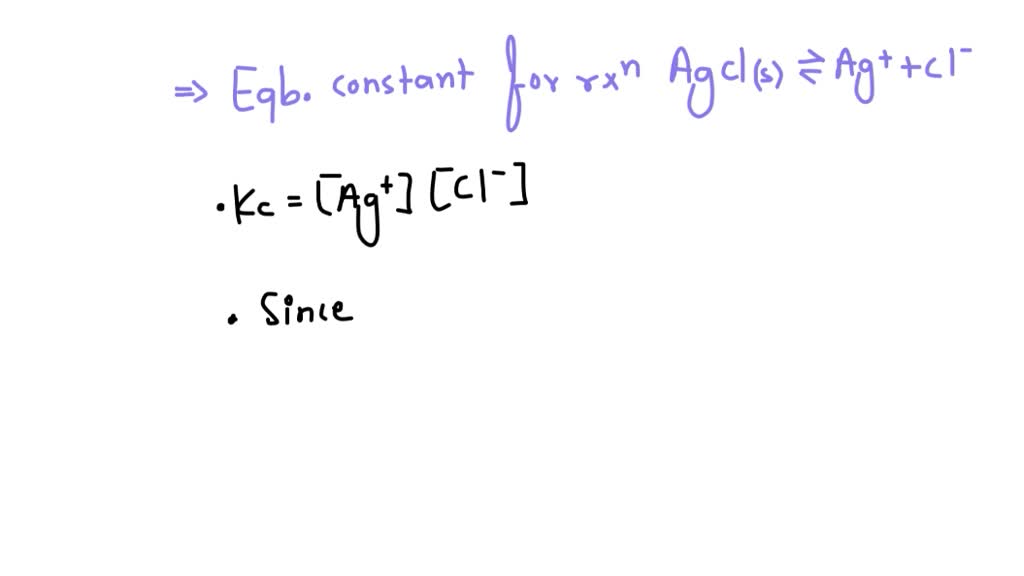 ⇒ Eqb. constant for rxⁿ Agcl(s) ⇌ Ag⁺ + cl⁻
. Kc = [Ag⁺] [Cl⁻]
. Since